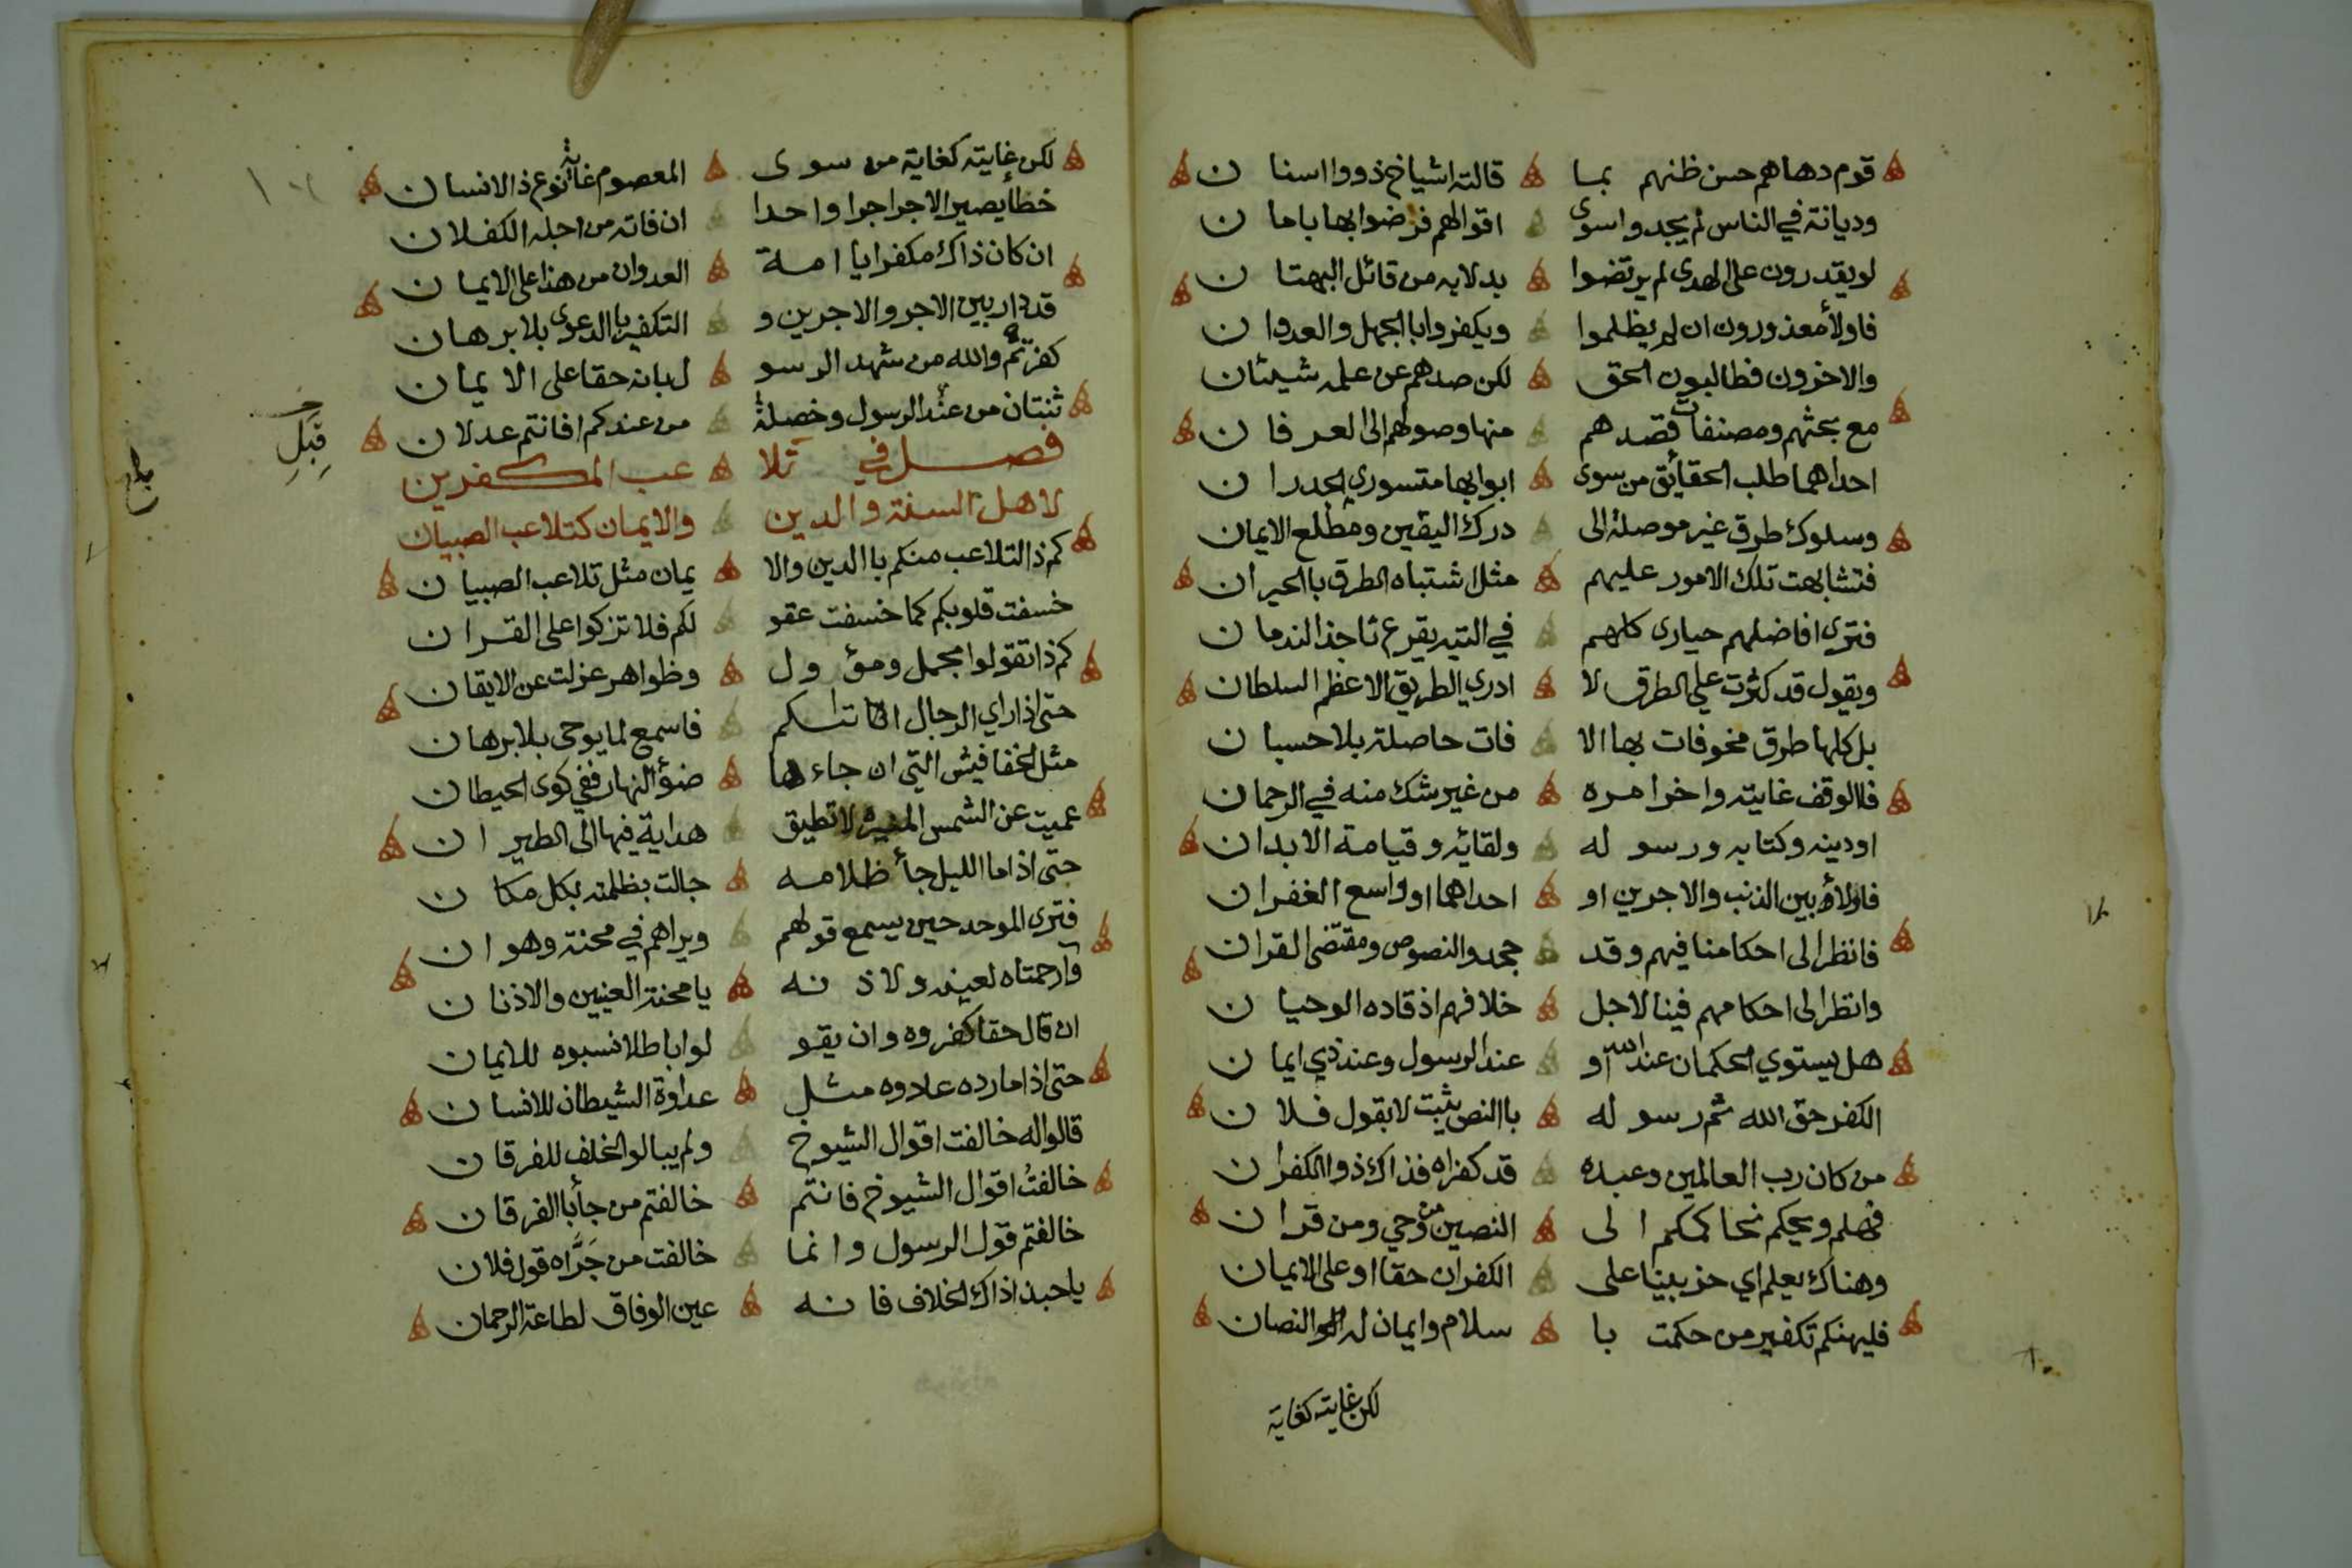 قوم دهاهم حسن ظنهم بما قالته اشياخ ذووا اسنان
وديانة في الناس لم يجدوا سوى اقوالهم فرضوا بها بامان
لو يقدرون على الهدى لم يرتضوا بدلا به من قائل البهتان
فاولأ معذورون ان لم يظلموا ويكفروا بالجهل والعدوان
والاخرون فطالبون الحق لكن صدهم عن علمه شيئان
مع بحثهم ومصنفات قصدهم منها وصولهم الى العرفان
احداهما طلب الحقائق من سوى ابوابها متسوري الجدران
وسلوك طرق غير موصلة الى درك اليقين ومطلع الايمان
فتشابهت تلك الامور عليهم مثل اشتباه الطرق بالحيران
فترى افاضلهم حيارى كلهم في التيه يقرع ناجذ الندمان
ويقول قد كثرت علي الطرق لا ادري الطريق الاعظم السلطان
بل كلها طرق مخوفات بها الا فات حاصلة بلا حسبان
فالوقف غايته واخر امره من غير شك منه في الرحمان
او دينه وكتابه ورسوله ولقائه وقيامة الابدان
فاولاؤ بين الذنب والاجرين او احداهما او واسع الغفران
فانظر الى احكامنا فيهم وقد جحدوا النصوص ومقتضى القران
وانظر الى احكامهم فينا لاجل خلافهم اذ قاده الوحيان
هل يستوي الحكمان عند الله او عند الرسول وعند ذي ايمان
الكفر حق الله ثم رسوله باالنص يثبت لا بقول فلان
من كان رب العالمين وعبده قد كفراه فذاك ذو الكفران
فهلم ويحكم نحاكمكم الى النصين من وحي ومن قران
وهناك يعلم اي حزبينا على الكفران حقا او على الايمان
فليهنكم تكفير من حكمت با سلام وايمان له النصان
لكن غايته كغاية
لكن غايته كغاية من سوى المعصوم غاية نوع ذا الانسان
خطأ يصير الاجر اجرا واحدا ان فاته من اجله الكفلان
ان كان ذاك مكفرا يا امة العدوان من هذا على الايمان
قد دار بين الاجر والاجرين و التكفير بالدعوى بلا برهان
كفرتم والله من شهد الرسو ل بانه حقا على الايمان
ثنتان من عند الرسول وخصلة من عندكم افانتم عدلان
قبل
فصل في تلا عب المكفرين
لاهل السنة والدين والايمان كتلاعب الصبيان
كم ذا التلاعب منكم باالدين والا يمان مثل تلاعب الصبيان
خسفت قلوبكم كما خسفت عقو لكم فلا تزكوا على القران
كم ذا تقولوا مجمل ومؤ ول وظواهر عزلت عن الايقان
حتى اذا راي الرجال اتاكم فاسمع لما يوحى بلا برهان
مثل الخفافيش التي ان جاءها ضوؤ النهار ففي كوى الحيطان
عميت عن الشمس المنيرة لا تطيق هداية فيها الى الطيران
حتى اذا ما الليل جأ ظلامه جالت بظلمته بكل مكان
فترى الموحد حين يسمع قولهم ويراهم في محنة وهوان
وآرحمتاه لعينه ولاذ نه يا محنة العينين والاذنان
ان قال حقا كفروه وان يقو لوا باطلا نسبوه للايمان
حتى اذا ما رده عادوه مثل عداوة الشيطان للانسان
قالوا له خالفت اقوال الشيوخ ولم يبالوا الخلف للفرقان
خالفتُ اقوال الشيوخ فانتم خالفتم من جأ باالفرقان
خالفتم قول الرسول وانما خالفت من جَرَّاه قول فلان
يا حبذا ذاك الخلاف فانه عين الوفاق لطاعة الرحمان